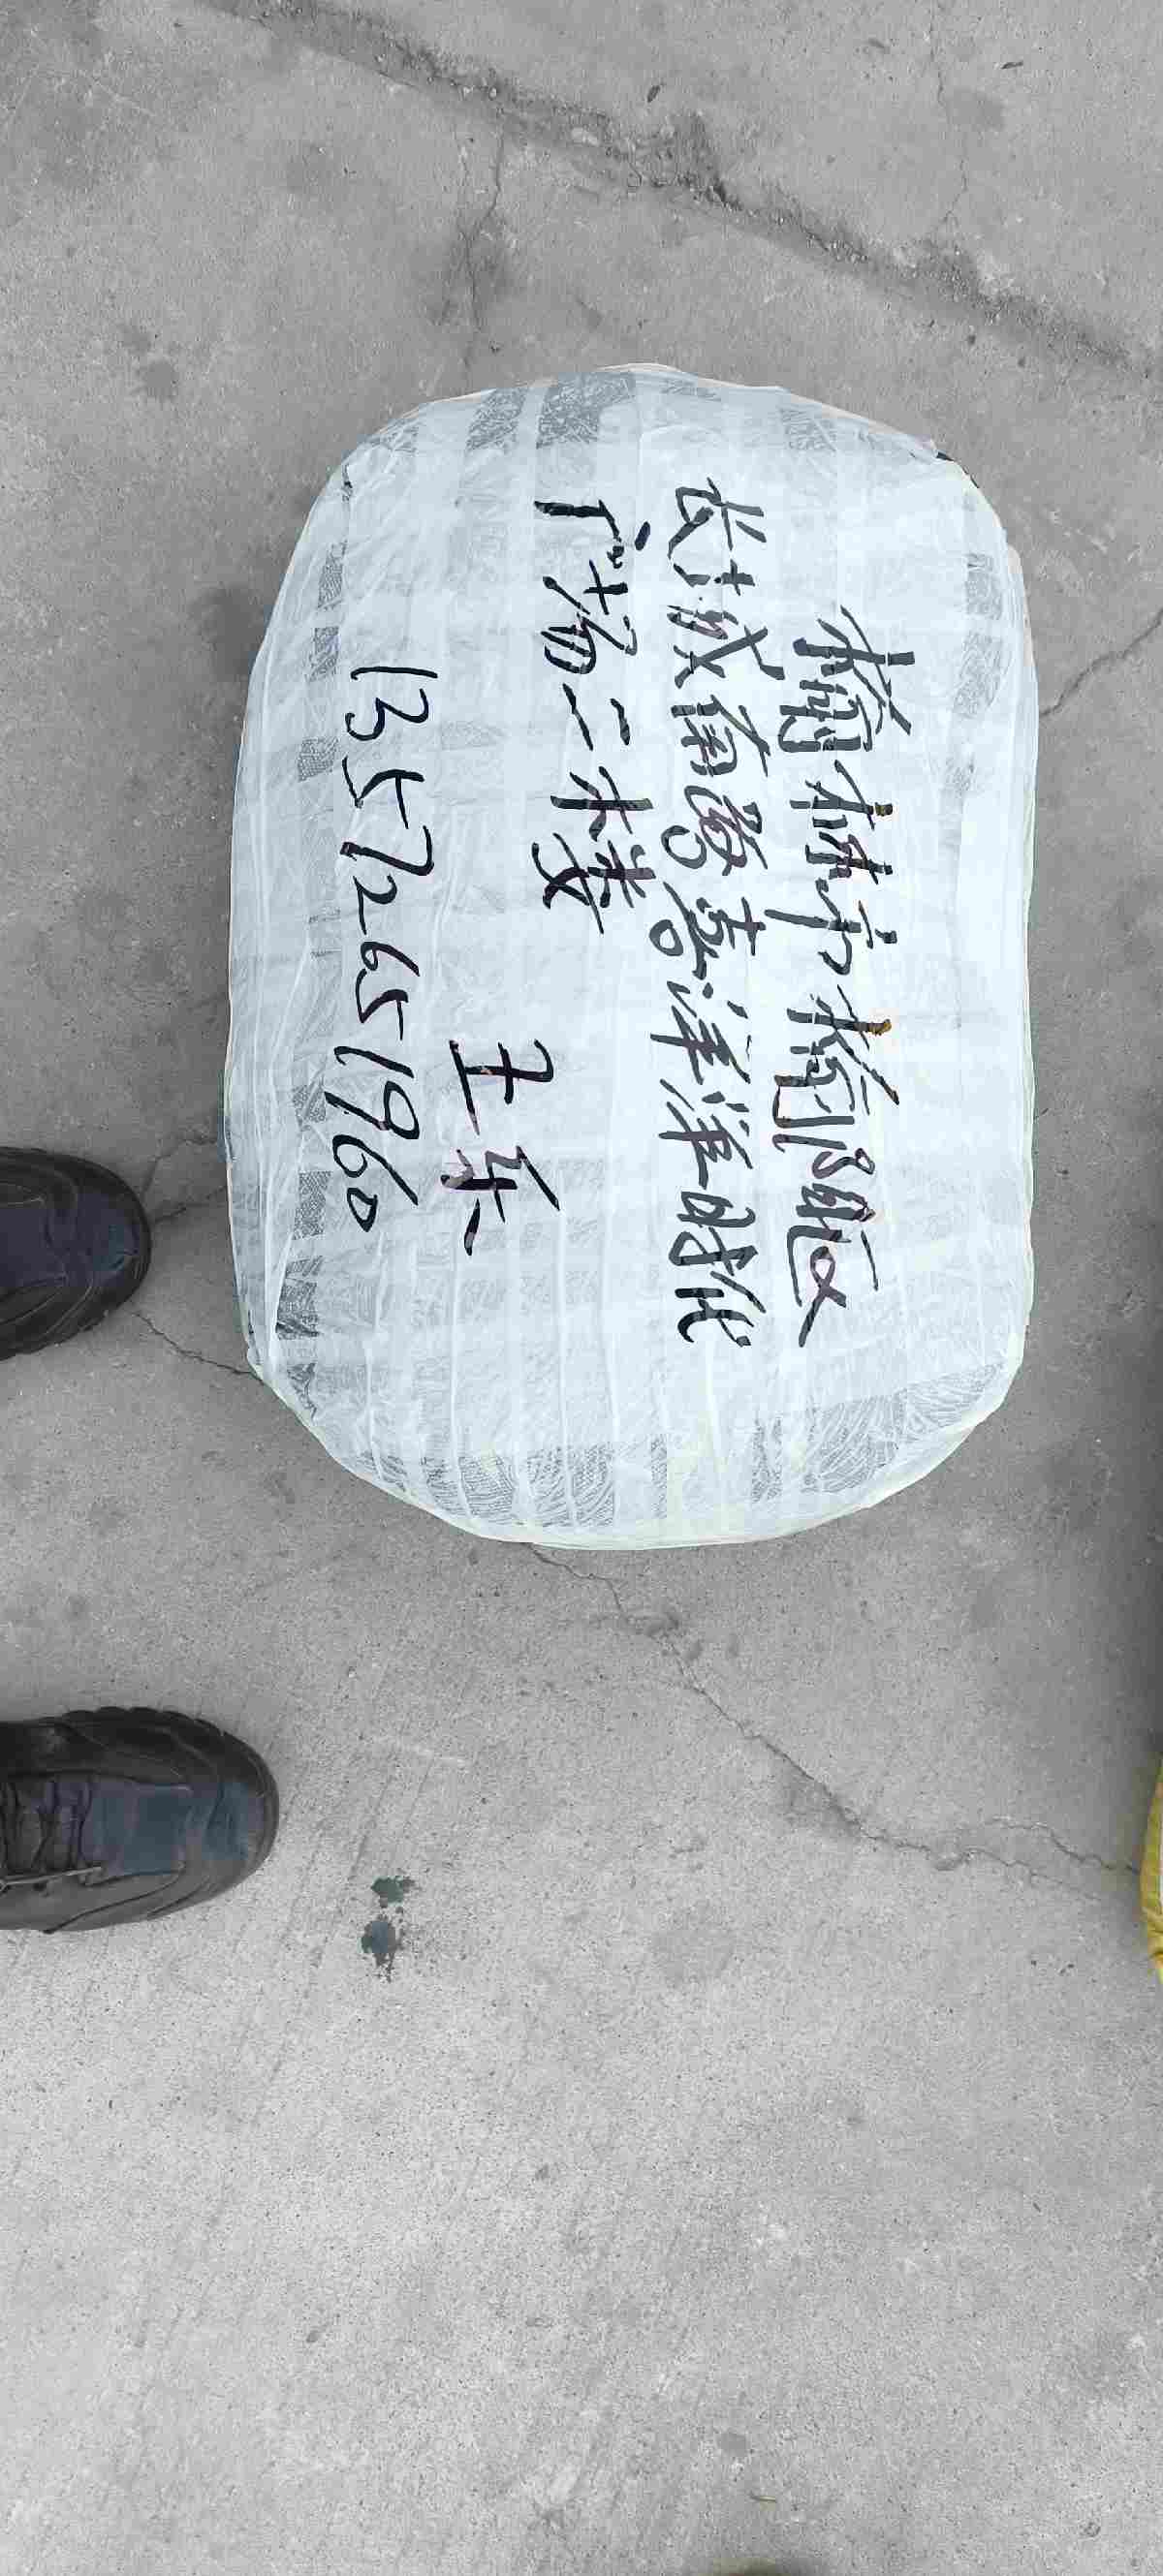 榆林市榆阳区
长城南路喜洋洋时代
广场二楼
王乐
13572651960